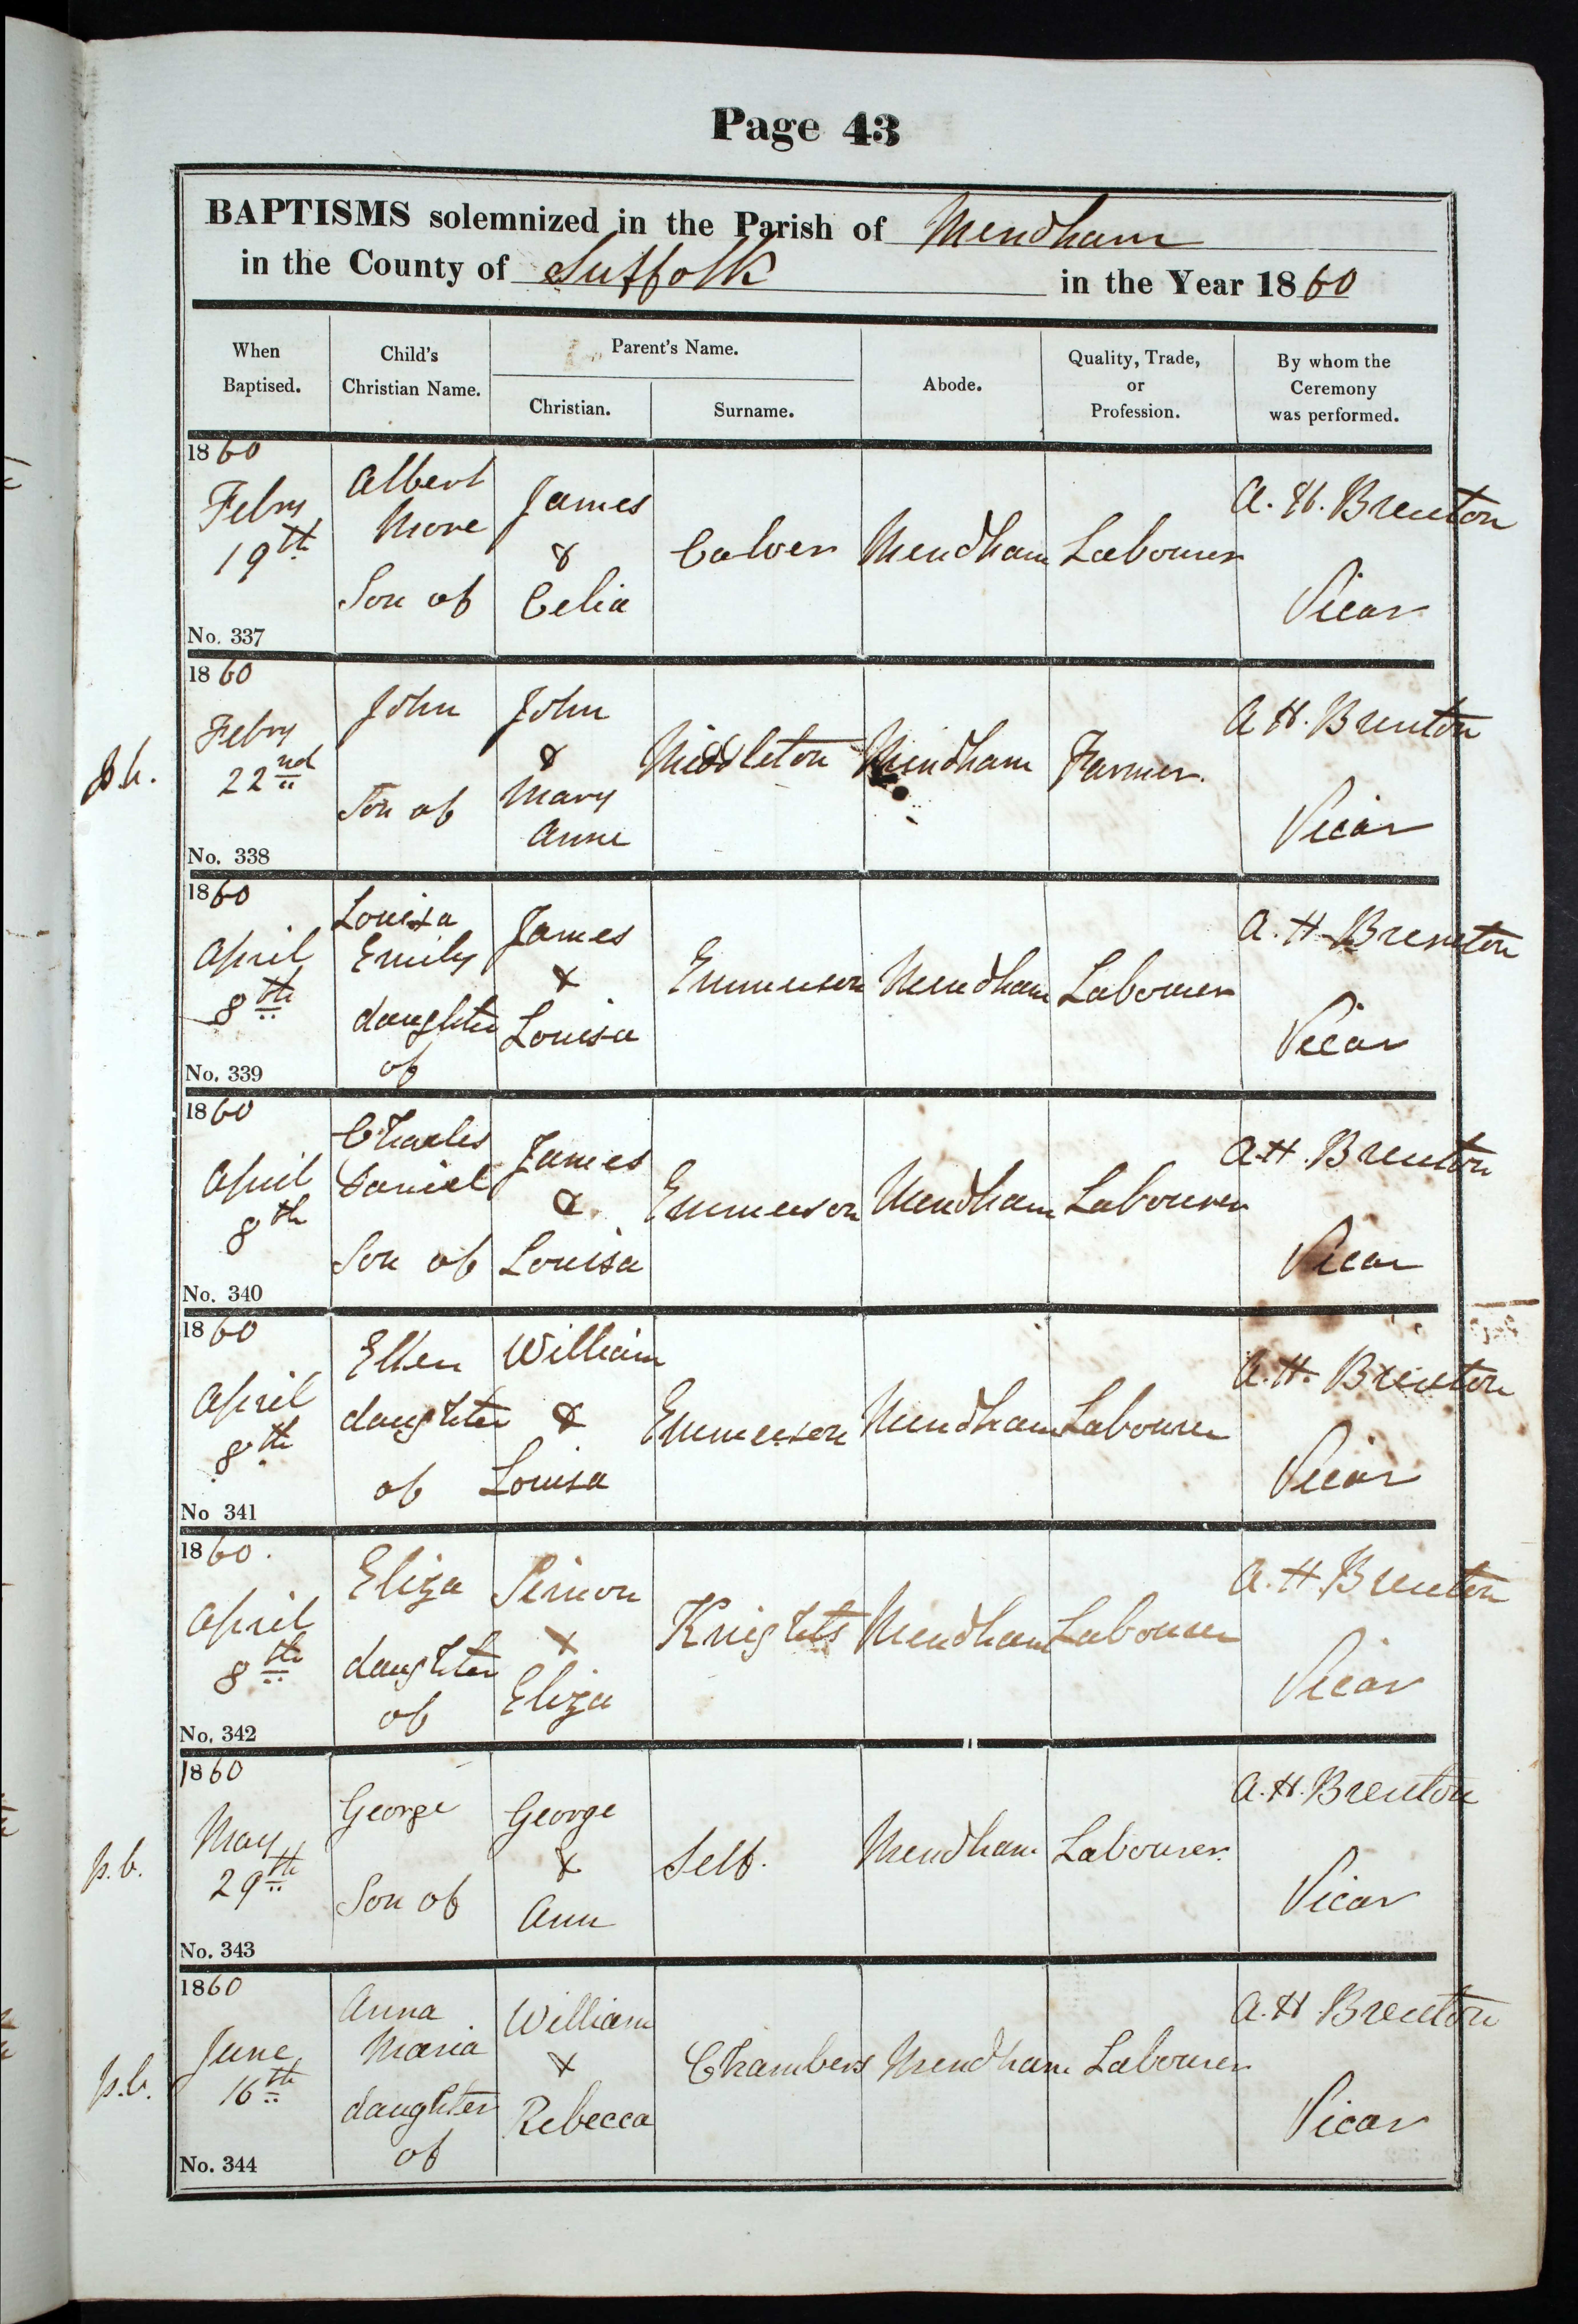 Page 43
BAPTISMS solemnized in the Parish of Mendham
in the County of Suffolk in the Year 1860
When Baptised.
Child's Christian Name.
Parent's Name.
Christian.
Surname.
Abode.
Quality, Trade, or Profession.
By whom the Ceremony was performed.
1860
Febry 19th
No. 337
Albert More
Son of
James & Celia
Calver
Mendham
Labourer
A. H. Brenton
Vicar
p.b.
1860
Febry 22nd
No. 338
John
Son of
John & Mary Anne
Middleton
Mendham
Farmer.
A H. Brenton
Vicar
1860
April 8th
No. 339
Louisa Emily
daughter of
James & Louisa
Emmerson
Mendham
Labourer
A. H. Brenton
Vicar
1860
April 8th
No. 340
Charles Daniel
Son of
James & Louisa
Emmerson
Mendham
Labourer
A H. Brenton
Vicar
1860
April 8th
No 341
Ellen
daughter of
William & Louisa
Emmerson
Mendham
Labourer
A. H. Brenton
Vicar
1860.
April 8th
No. 342
Eliza
daughter of
Simon & Eliza
Knights
Mendham
Labourer
A. H. Brenton
Vicar
p.b.
1860
May 29th
No. 343
George
Son of
George & Ann
Self.
Mendham
Labourer.
A. H. Brenton
Vicar
p.b.
1860
June 16th
No. 344
Anna Maria
daughter of
William & Rebecca
Chambers
Mendham
Labourer
A. H. Brenton
Vicar